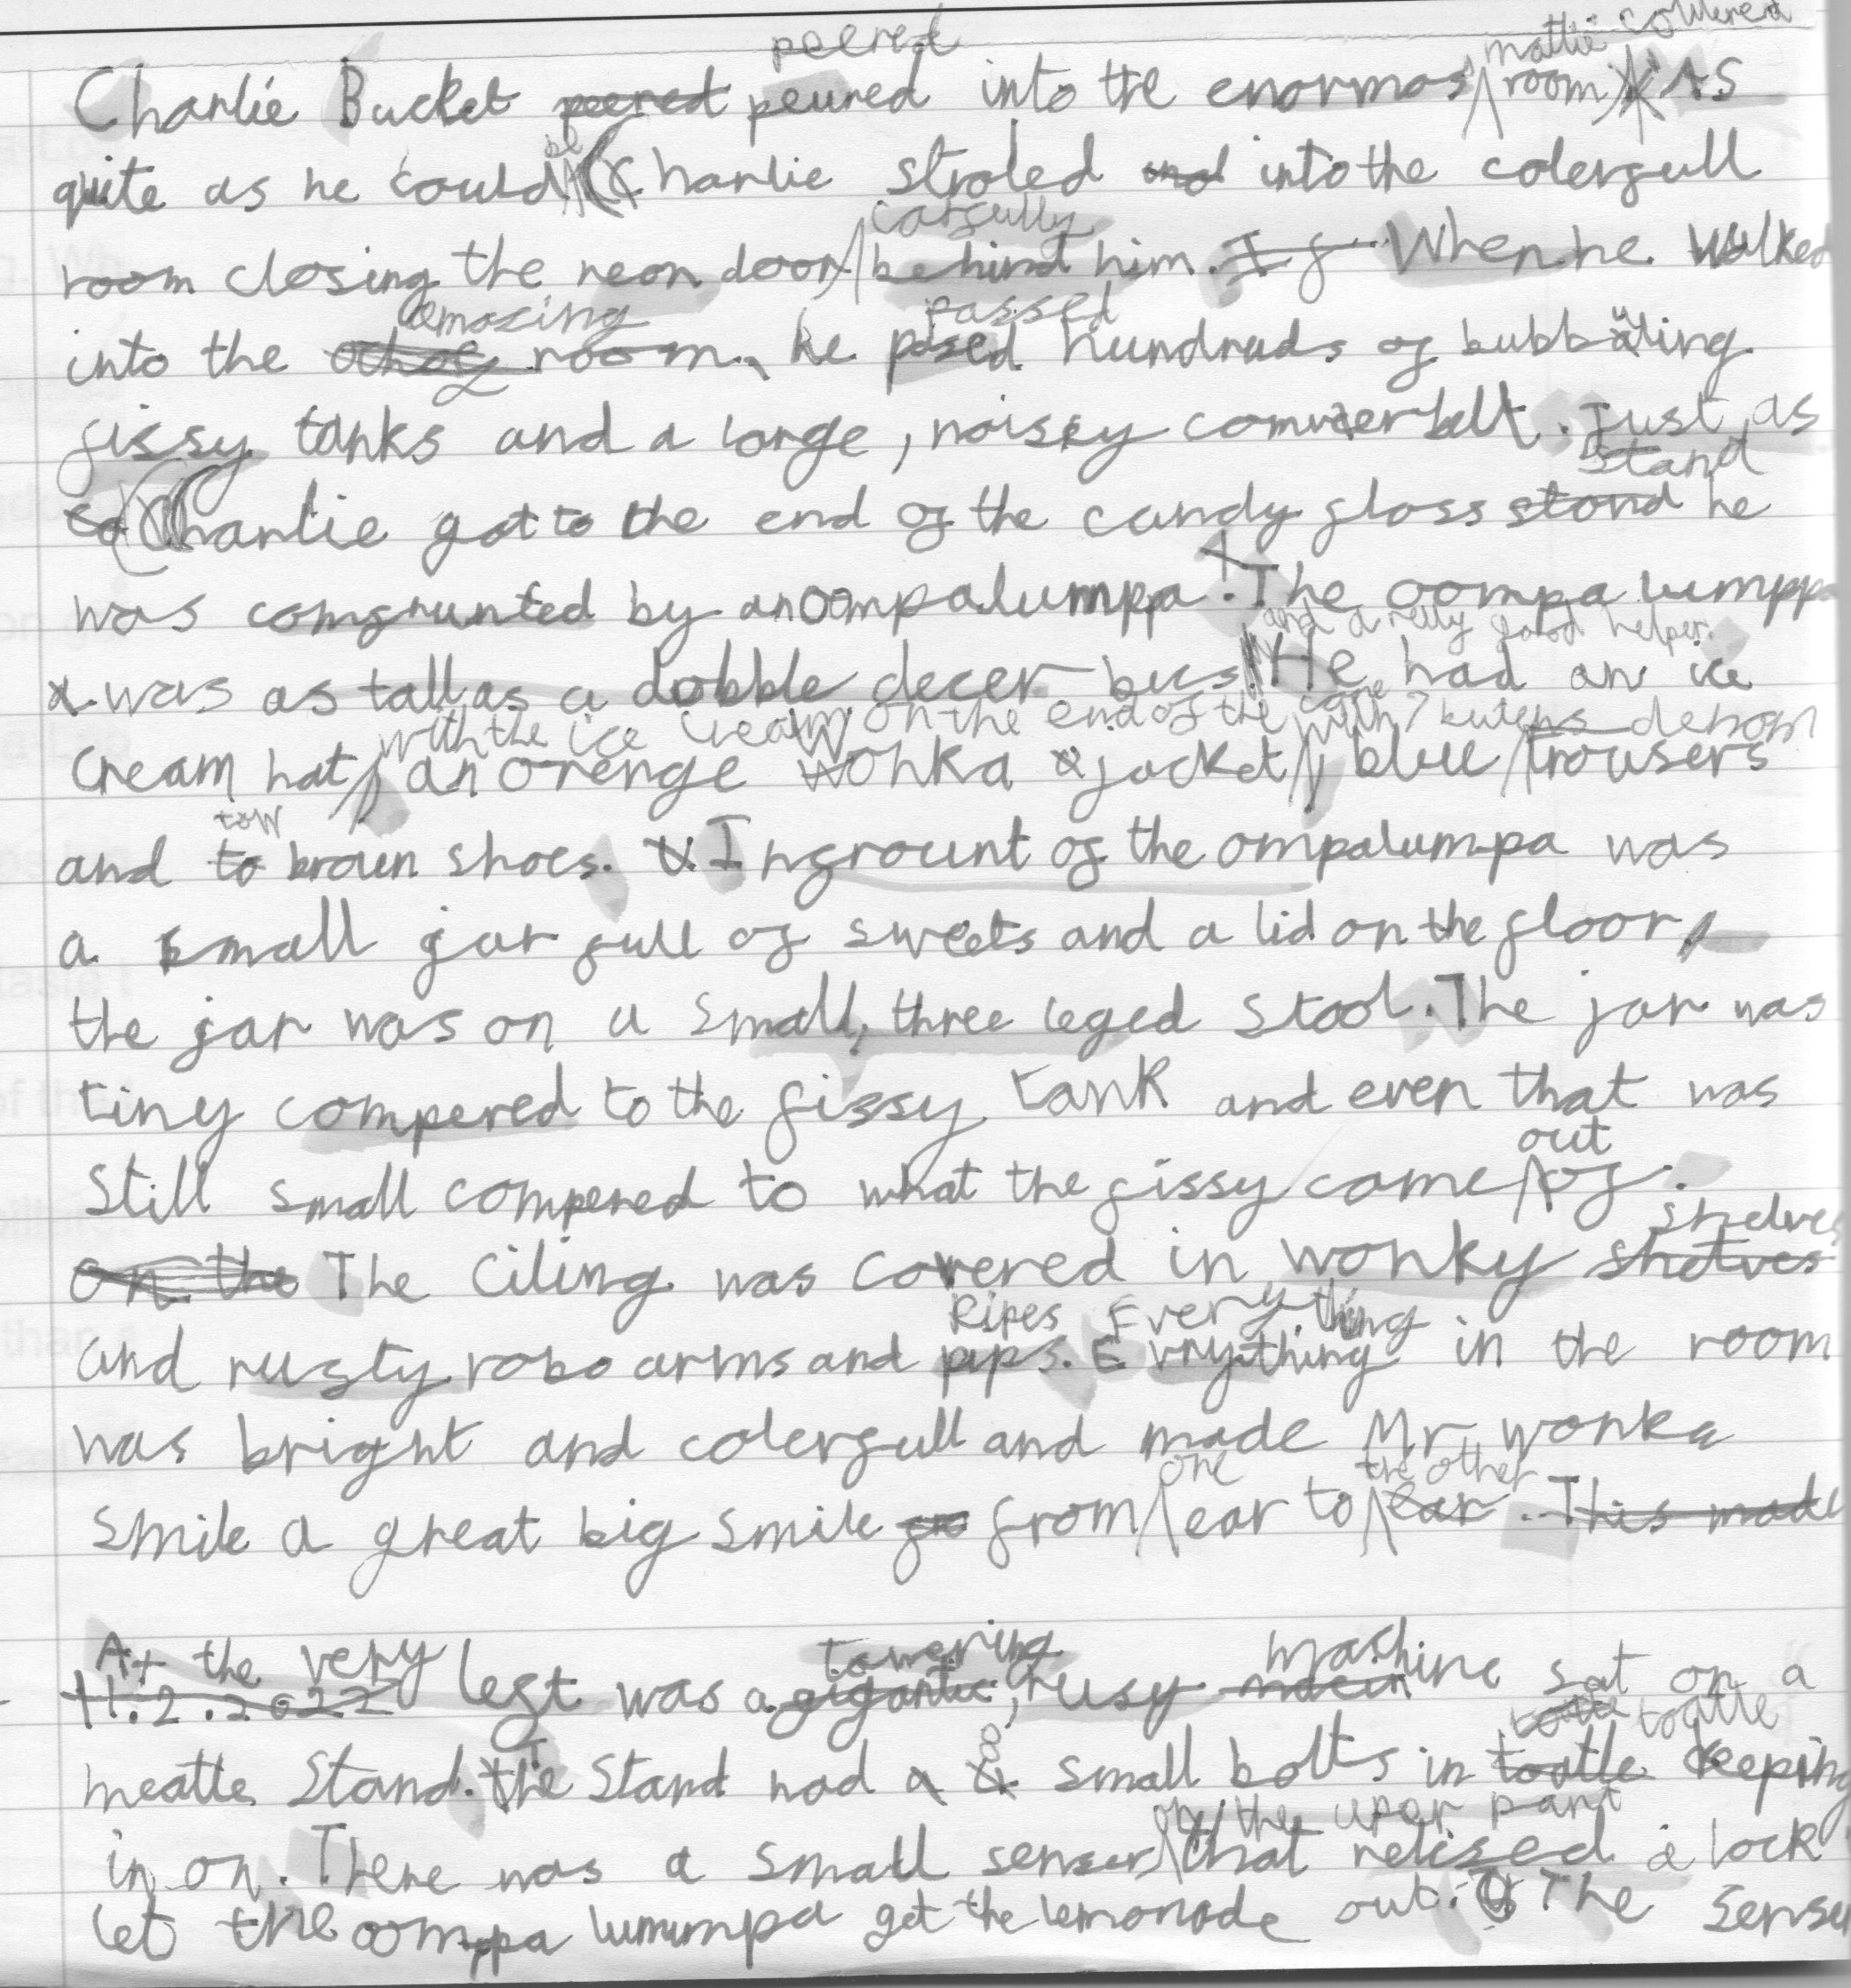 peered mattie coullered
Charlie Bucket peered peured into the enormos room. As
quite as he could Charlie stroled and into the colerfull
carfully
room closing the neon door behind him. If When he walked
amazing passed
into the room, he posed hundrads of bubbuling
fissy tanks and a large, noisey comverbelt. Just as
stand
Charlie got to the end of the candy floss stond he
was comfrunted by an oompalumppa! The oompa lumppa
and a relly good helper.
was as tall as a dobble decer bus. He had an ice
with the ice cream on the end of the cone with 7 butens denom
cream hat, an orenge wonka jacket, blue trousers
tow
and to broun shoes. Infrount of the ompalumpa was
a small jar full of sweets and a lid on the floor,
the jar was on a small, three leged stool. The jar was
tiny compered to the fissy tank and even that was
out
still small compered to what the fissy came of.
shelves
on the The Ciling was covered in wonky shetves
Pipes Everything
and rusty robo arms and pips. Evrything in the room
was bright and colerfull and made Mr wonka
one the other
smile a great big smile from ear to ear. This made
At the very towering mashine
11.2.2022 left was a gigantic, rusy sat on a
toatle
meatle stand. The stand had a 8 small bolts in toatle keeping
on the uper part
in on. There was a small senser that relised a lock
let the oomppa lumumpa get the lemonade out. The senser